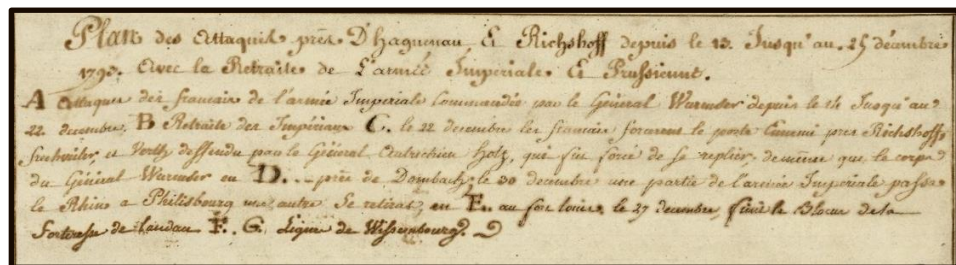 Plan des Attaques près D'haguenau Et Richshoff depuis le 13. Jusqu'au 25 décembre
1793. Avec la Retraite de L'armée Imperiale Et Prussienne.
A Attaques des francais de l'armée Imperiale Commandée par le Général Wurmser depuis le 14 Jusqu'au
22 decembre. B Retraite des Impériaux C. le 22 decembre les francais forcerent le poste Ennemi pres Richshoff
Freshviler, et Verth deffendu par le Général Autrichien Hotz, qui fut forcé de se replier, de même que le corps
du Général Wurmser en D... près de Dornbach; le 30 decembre une partie de l'armée Imperiale passa
le Rhin a Philisbourg une autre Se retira, en E. au fort louis, le 27 decembre, finit le Blocus de la
Forteresse de Landau F. G. Ligne de Wissembourg.